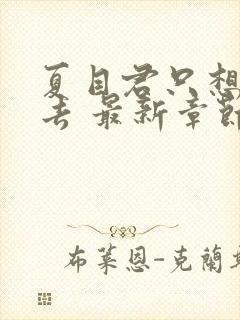 夏目君只想
去 最新章節
布萊恩-克蘭